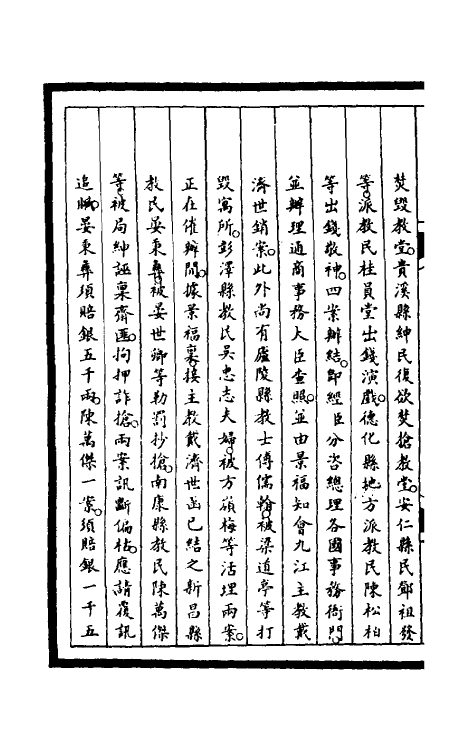 焚毀教堂。貴溪縣紳民復欲焚搶教堂。安仁縣民鄧祖發
等。派教民桂員堂出錢演戲。德化縣地方派教民陳松柏
等出錢敬神。四案辦結。即經臣分咨總理各國事務衙門。
並辦理通商事務大臣查照。並由景福知會九江主教戴
濟世銷案。此外尚有廬陵縣教士傅儒翰。被梁道亭等打
毀寓所。彭澤縣教民吳忠志夫婦。被方嶺梅等活埋兩案。
正在催辦間。據景福稟。接主教戴濟世函。已結之新昌縣
教民晏東彝。被晏世卿等勒罰抄搶。南康縣教民陳萬傑
等。被局紳誣稟齊匪。拘押詐搶。兩案訊斷偏枯。應請覆訊
追贓。晏東彝須賠銀五千兩。陳萬傑一案。須賠銀一千五